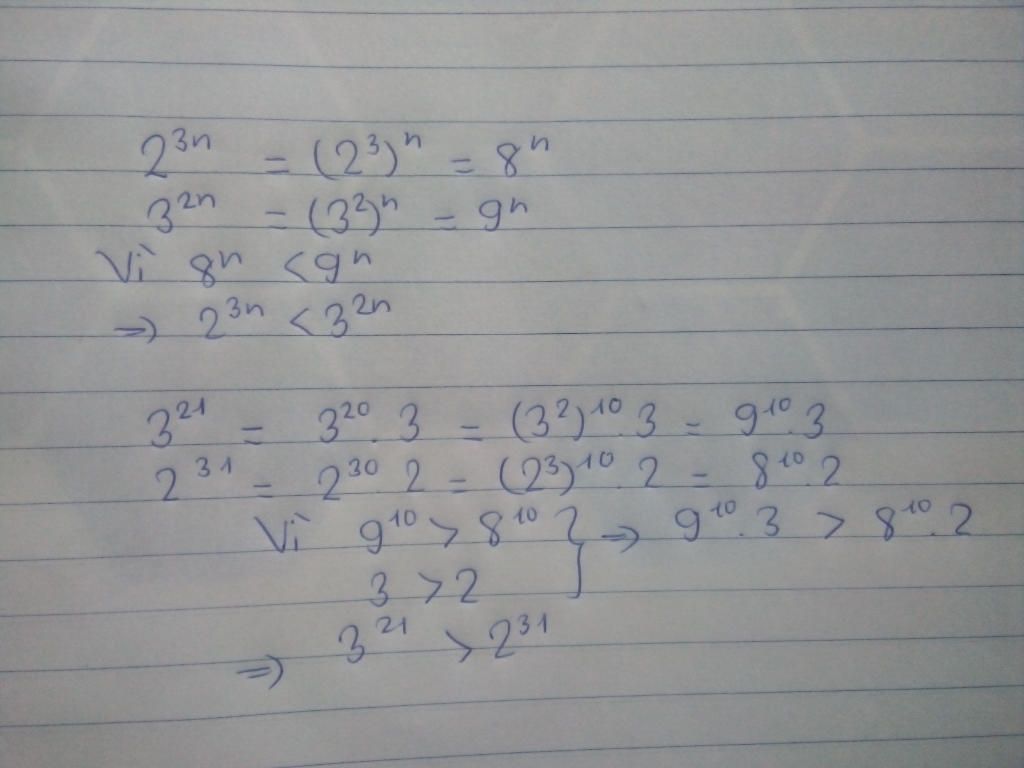 2³ⁿ = (2³)ⁿ = 8ⁿ
3²ⁿ = (3²)ⁿ = 9ⁿ
Vì 8ⁿ < 9ⁿ
=> 2³ⁿ < 3²ⁿ
3²¹ = 3²⁰.3 = (3²)¹⁰.3 = 9¹⁰.3
2³¹ = 2³⁰.2 = (2³)¹⁰.2 = 8¹⁰.2
Vì 9¹⁰ > 8¹⁰ } => 9¹⁰.3 > 8¹⁰.2
3 > 2
=> 3²¹ > 2³¹